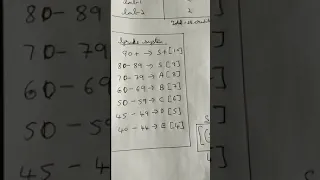 Lab 1
Lab 2 2
Grade system
90+ → S+ [10]
80 - 89 → S [9]
70 - 79 → A [8]
60 - 69 → B [7]
50 - 59 → C [6]
45 - 49 → D [5]
40 - 44 → E [4]
80 -
70 - 79
60 - 6
50 - 59
45 - 4